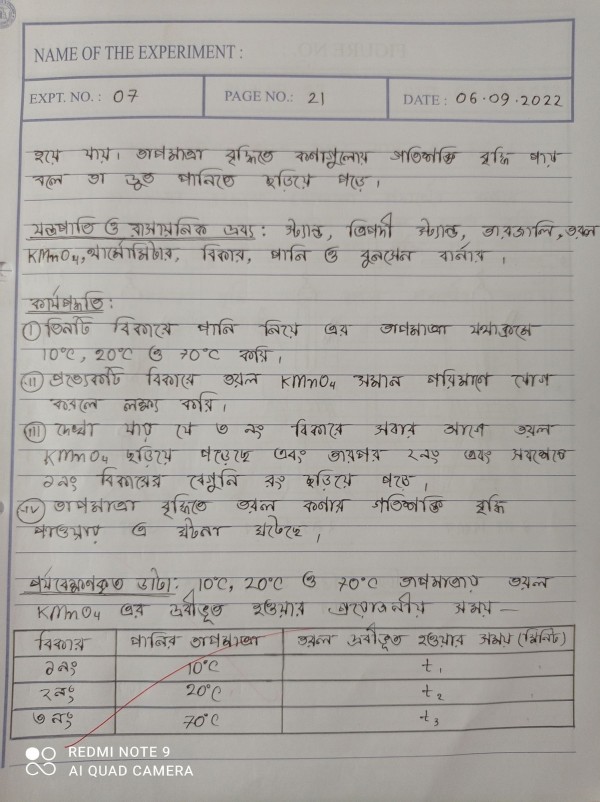 NAME OF THE EXPERIMENT :
EXPT. NO. : 07 PAGE NO.: 21 DATE : 06.09.2022
হয়ে যায়। তাপমাত্রা বৃদ্ধিতে কণাগুলোর গতিশক্তি বৃদ্ধি পায়
বলে তা দ্রুত পানিতে ছড়িয়ে পড়ে।
যন্ত্রপাতি ও রাসায়নিক দ্রব্য: স্ট্যান্ড, ত্রিপদী স্ট্যান্ড, তারজালি, তরল
KMnO4, থার্মোমিটার, বিকার, পানি ও বুনসেন বার্নার।
কার্যপদ্ধতি:
(i) তিনটি বিকারে পানি নিয়ে এর তাপমাত্রা যথাক্রমে
10°C, 20°C ও 70°C করি।
(ii) প্রত্যেকটি বিকারে তরল KMnO4 সমান পরিমাণে যোগ
করলে লক্ষ্য করি।
(iii) দেখা যায় যে ৩ নং বিকারে সবার আগে তরল
KMnO4 ছড়িয়ে পড়েছে এবং তারপর ২নং এবং সবশেষে
১নং বিকারের বেগুনি রং ছড়িয়ে পড়ে।
(iv) তাপমাত্রা বৃদ্ধিতে তরল কণার গতিশক্তি বৃদ্ধি
পাওয়ায় এ ঘটনা ঘটেছে।
পর্যবেক্ষণকৃত ডাটা: 10°C, 20°C ও 70°C তাপমাত্রায় তরল
KMnO4 এর দ্রবীভূত হওয়ার প্রয়োজনীয় সময় —
বিকার পানির তাপমাত্রা তরল দ্রবীভূত হওয়ার সময় (মিনিট)
১নং 10°C t1
২নং 20°C t2
৩নং 70°C t3
REDMI NOTE 9
AI QUAD CAMERA